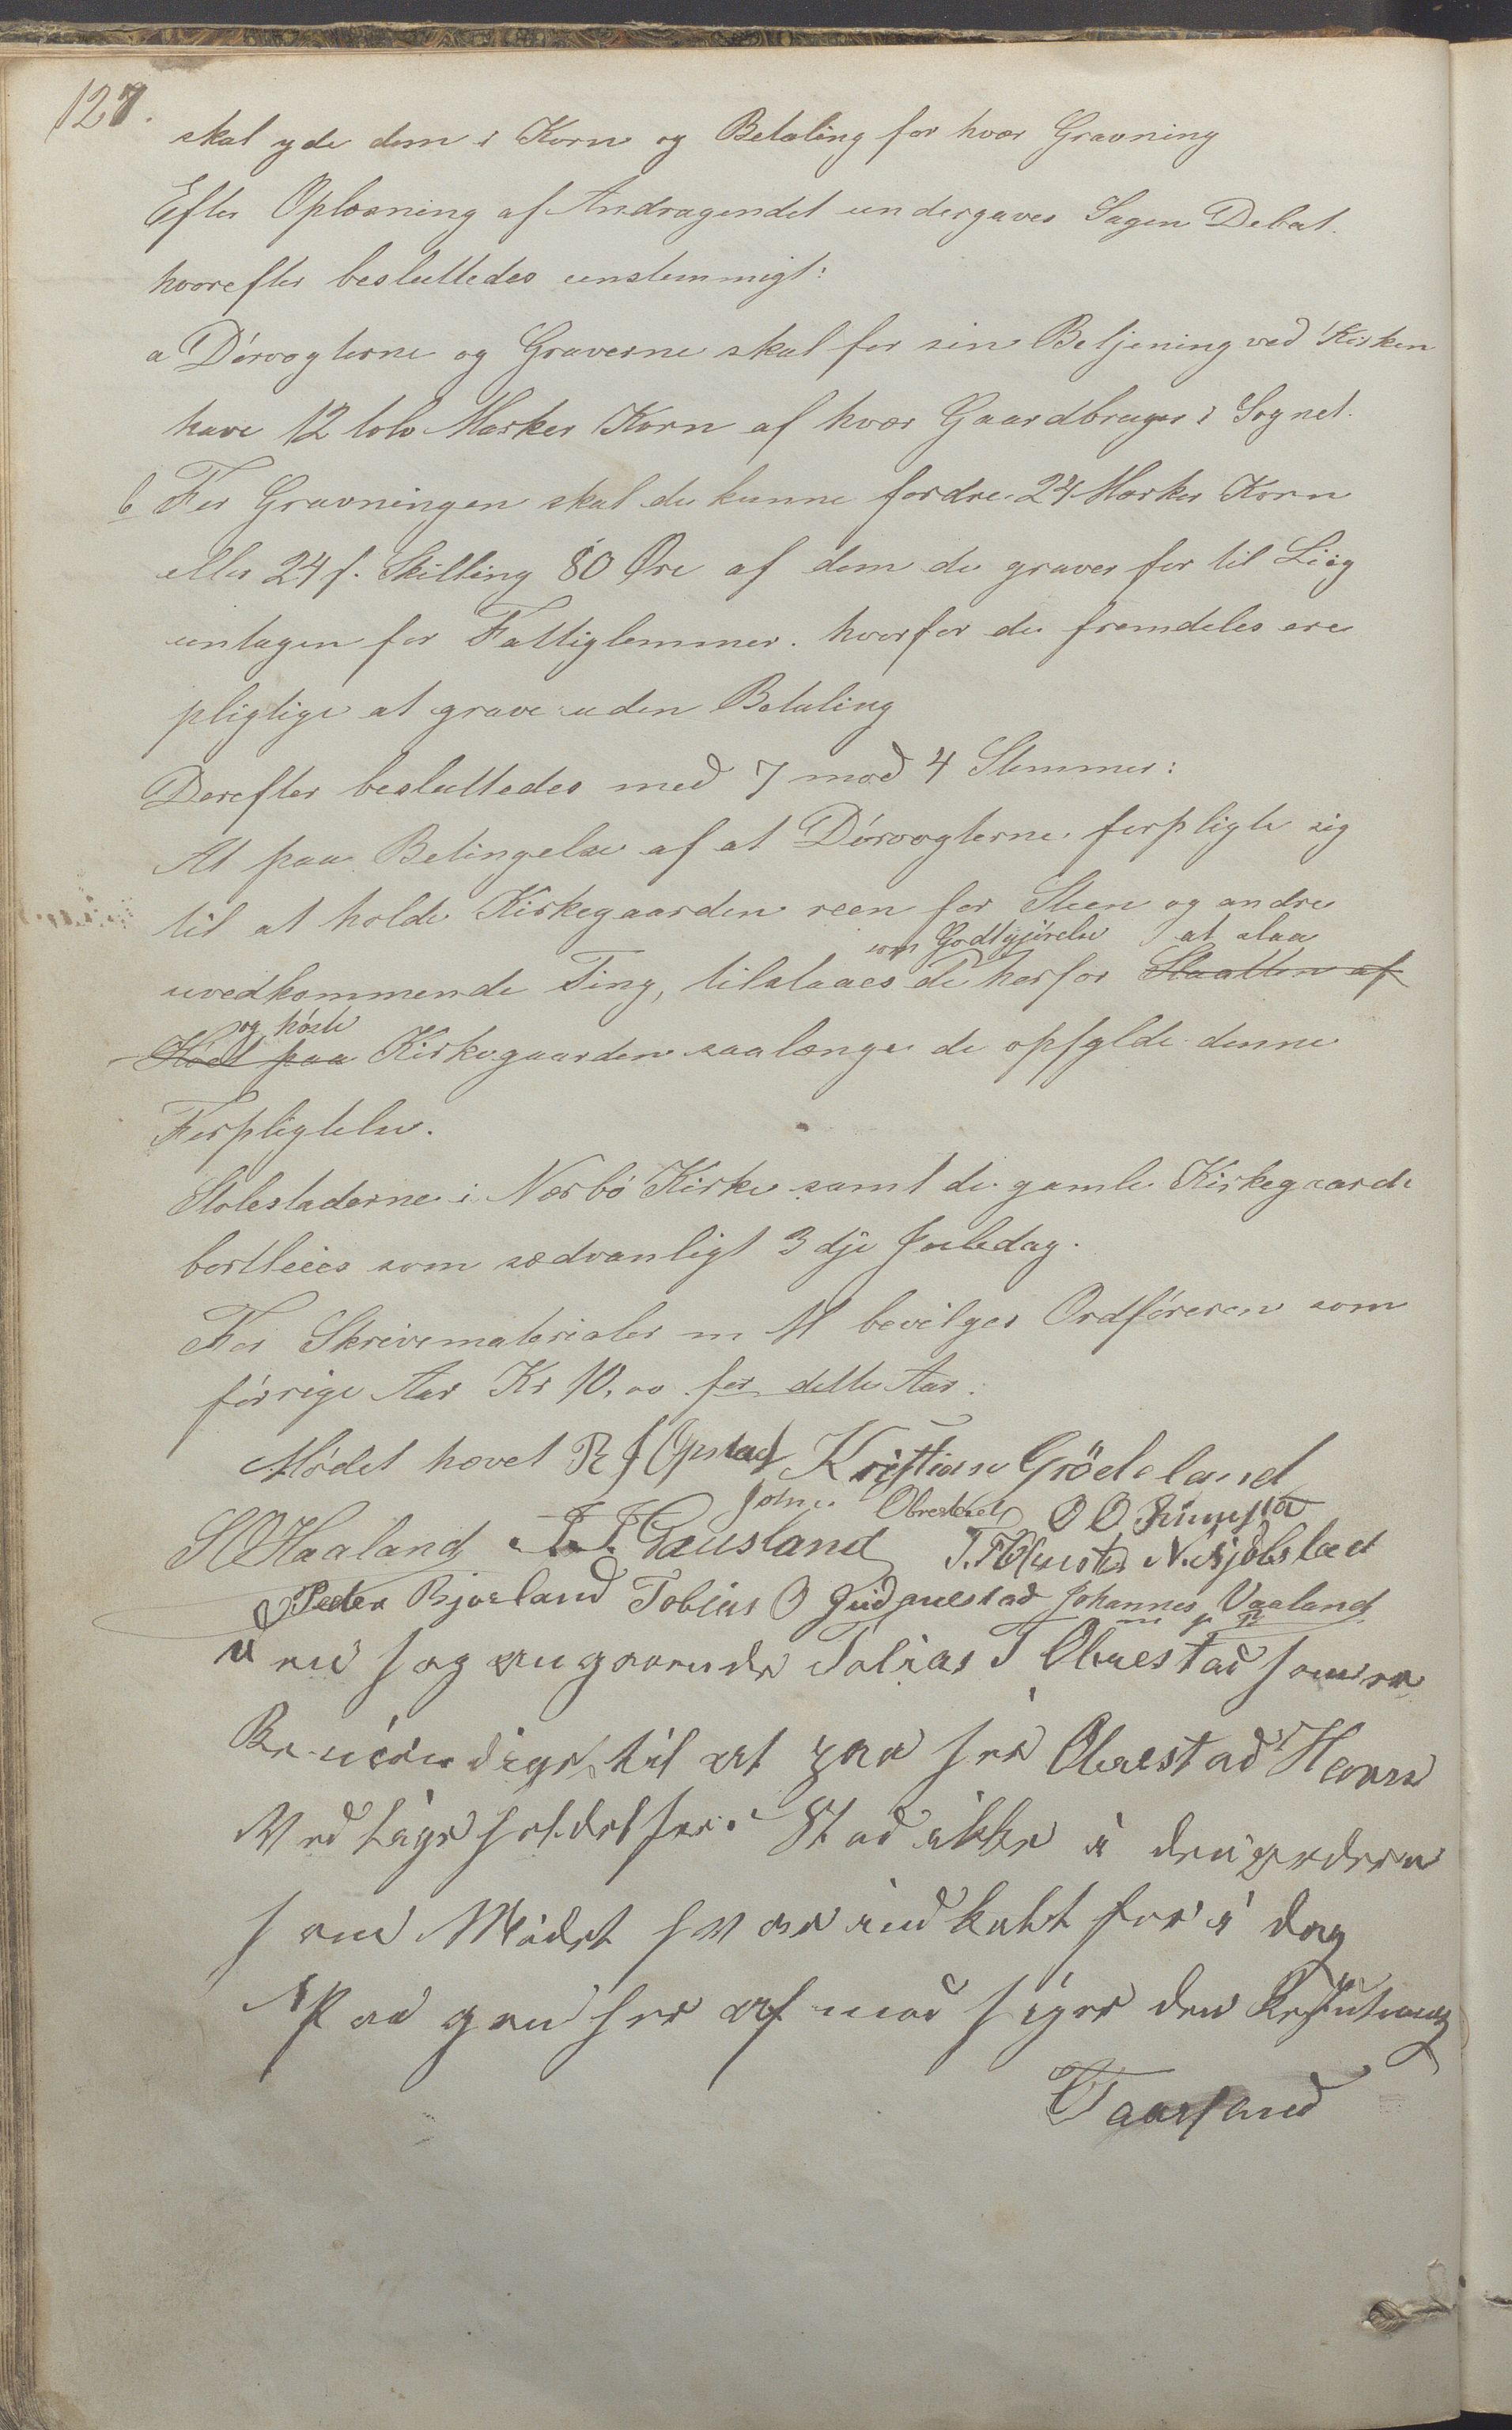 127.
skal yde dem i Korn og Betaling for hver Gravning
Efter Oplæsning af Andragendet undergaves Sagen Debat.
hvorefter besluttedes enstemmigt:
a Dörvogterne og Graverne skal for sin Betjening ved Kirken
have 12 tolv Marker Korn af hver Gaardbruger i Sognet.
b For Gravningen skal de kunne fordre 24 Marker Korn
eller 24 f. Skilling 80 Øre af dem de graver for til Liig
untagen for Fattiglemmer. hvorfor de fremdeles ere
pligtige at grave uden Betaling
Derefter besluttedes med 7 mod 4 Stemmer:
At paa Betingelse af at Dörvogterne forpligte sig
til at holde Kirkegaarden reen for Steen og andre
som Godtgjörelse at slaa
uvedkommende Ting, tilstaaes de herfor Slaatten af
og höste
Höet paa Kirkegaarden saalænge de opfylde denne
Forpligtelse.
Stolestaderne i Nærbö Kirke samt de gamle Kirkegaarde
bortleies som sædvanligt 3dje Juledag.
For Skrivematerialer m M bevilges Ordföreren som
förrige Aar Kr 10,00 for dette Aar.
Mödet hævet R J Opstad Kristian Grödeland
John Obrestad O O
S O Haaland J. J. Gausland N. Njölstad
Peder Bjorland Tobias O Gudmestad Johannes Vaaland
m p P
en sag angaaende Tobias T Obrestad som
til at Obrestad Havn
Stad ikke i
som Mödet var indkalt for i dag
den Beslutning
Taarland